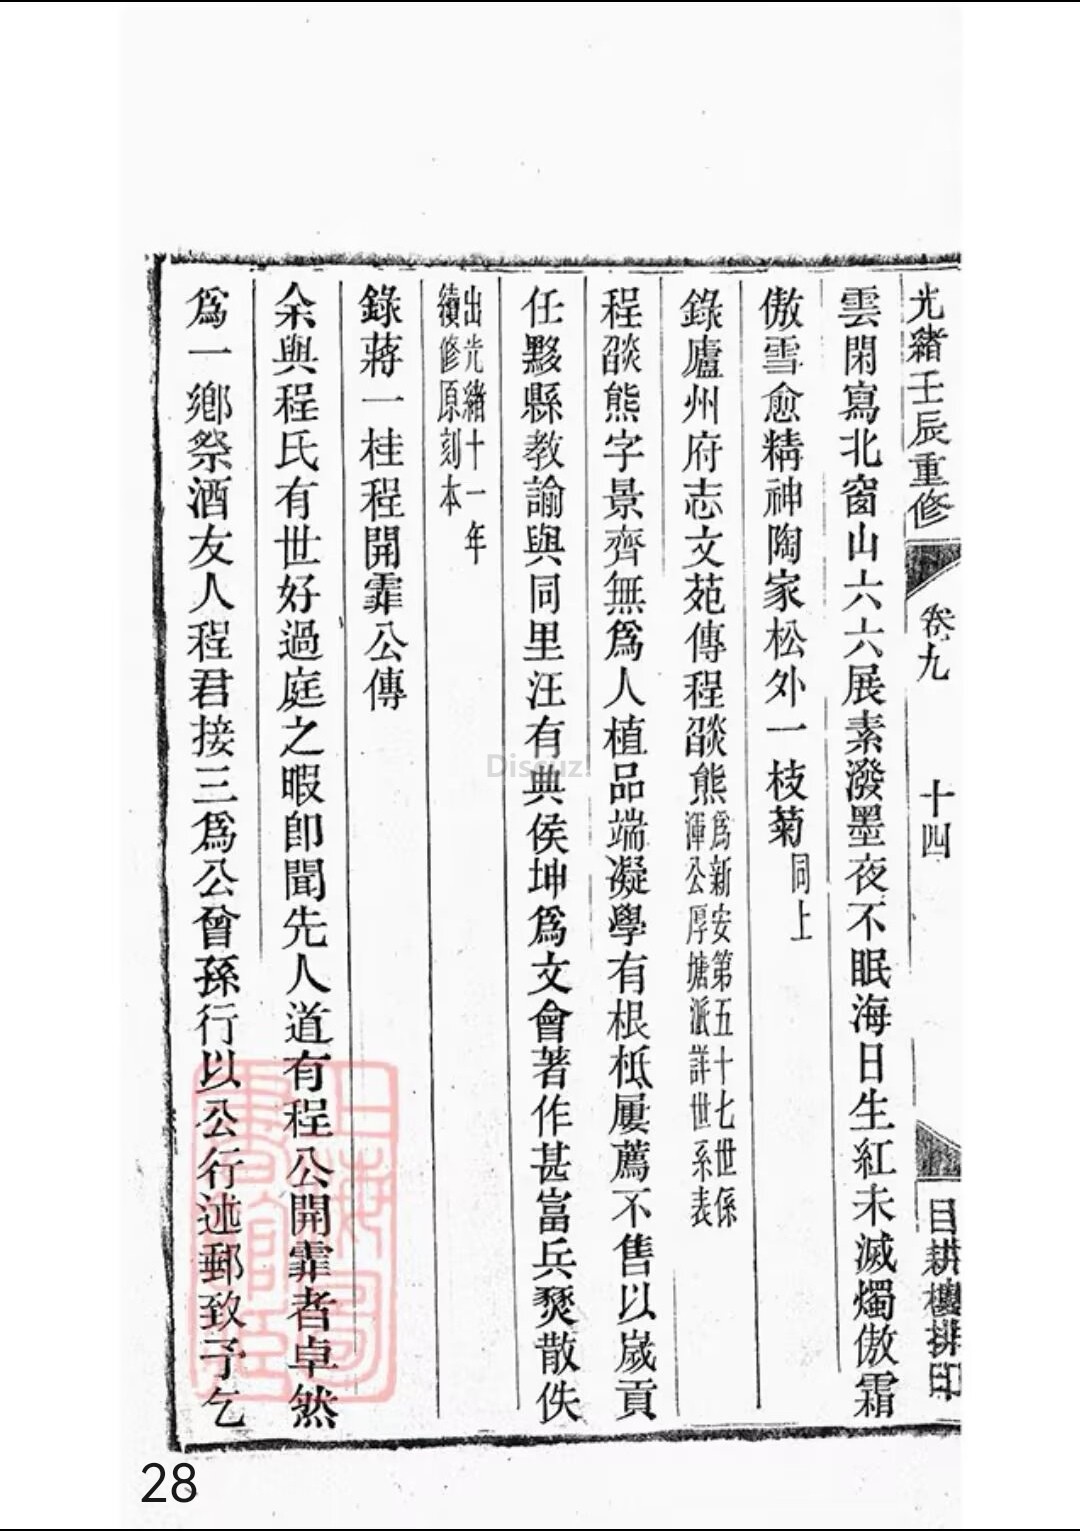 光緒壬辰重修
卷九
十四
目耕樓排印
雲閑寫北窗山六六展素潑墨夜不眠海日生紅未滅燭傲霜
傲雪愈精神陶家松外一枝菊同上
錄廬州府志文苑傳程燄熊為新安第五十七世係
渾公厚塘派詳世系表
程燄熊字景齊無爲人植品端凝學有根柢屢薦不售以歲貢
任黟縣教諭與同里汪有典侯坤爲文會著作甚富兵燹散佚
出光緒十一年
續修原刻本
錄蔣一桂程開霏公傳
余與程氏有世好過庭之暇卽聞先人道有程公開霏者卓然
爲一鄉祭酒友人程君接三爲公曾孫行以公行述郵致予乞
上海圖書館藏
Discuz!
28